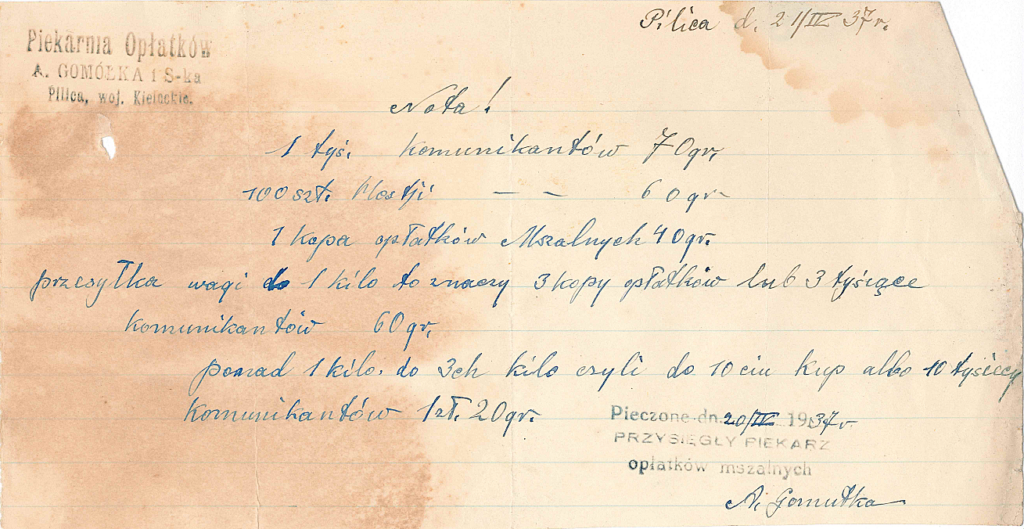 Pilica d. 21/IV 37r.
Piekarnia Opłatków
A. GOMÓŁKA i S-ka
Pilica, woj. Kieleckie.
Nota!
1 tyś. Komunikantów 70gr,
100 szt. Hostji — — 60gr-
1 Kopa opłatków Mszalnych 40gr.
przesyłka wagi do 1 kilo to znaczy 3 kopy opłatków lub 3 tysiące
Komunikantów 60gr,
ponad 1 kilo. do 3ch kilo czyli do 10ciu kup albo 10 tyśięcy
Komunikantów 1 zł. 20gr.
Pieczone dn. 20/IV 1937r
PRZYSIĘGŁY PIEKARZ
opłatków mszalnych
A. Gomułka